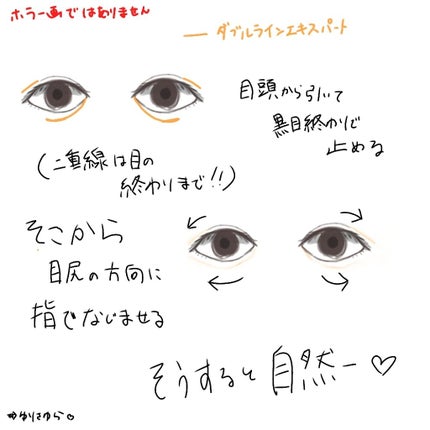 ホラー画ではありません
ダブルラインエキスパート
目頭から引いて
黒目終わりで
止める
(二重線は目の
終わりまで!!)
そこから
目尻の方向に
指でなじませる
そうすると自然ー♡